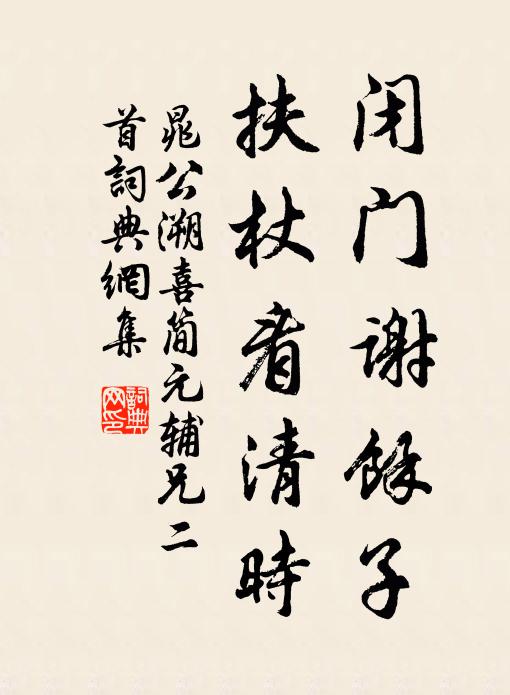 闭门谢馀子
扶杖看清時
晁公溯喜简元辅兄二
首詞典網集
詞典
网印